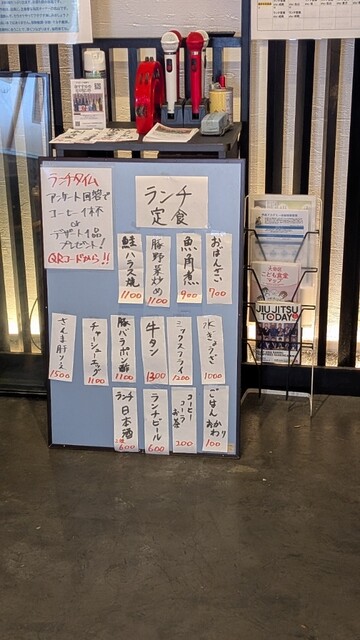 ランチタイム
アンケート回答で
コーヒー1杯
or
デザート1品
プレゼント!
QRコードから!!
ランチ
定食
おばんざい
700
魚角煮
900
豚野菜炒め
1100
鮭ハラス焼
1100
水ぎょうざ
1000
ミックスフライ
1200
牛タン
1300
豚バラポン酢
1100
チャーシューエッグ
1100
さんま肝ソース
1500
ごはんおかわり
100
コーヒー
コーラ
お茶
200
ランチビール
600
ランチ
日本酒
600
こども食堂
マップ
JIU JITSU
TODAY